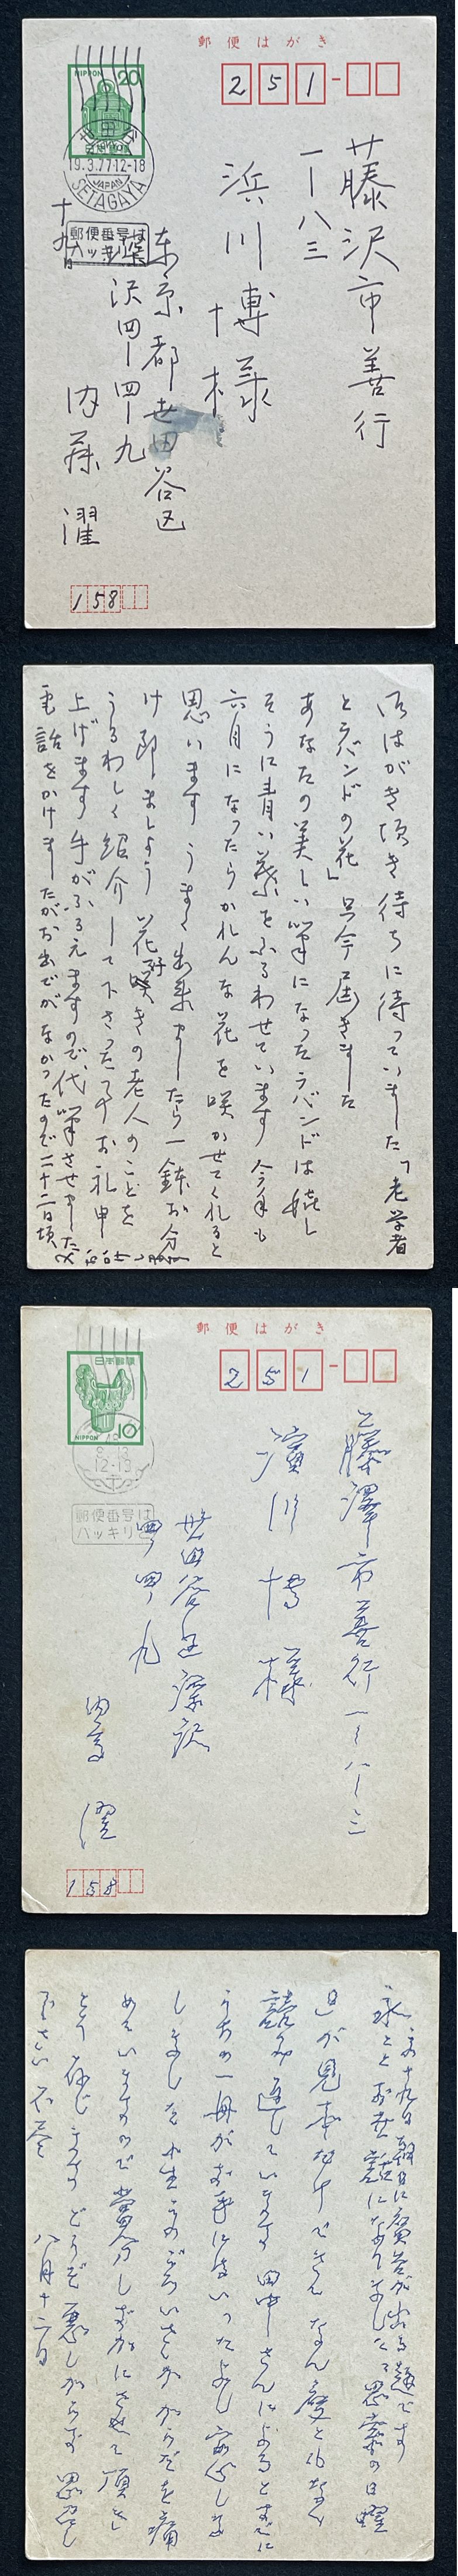 郵便はがき
251-
NIPPON 20
世田谷
19.3.77.12-18
JAPAN
SETAGAYA
郵便番号は
ハッキリと
藤沢市善行
一ー八三
浜川博様
十九日
東京都世田谷区
深沢四ー四ー九
内藤濯
158
御はがき頂き待ちに待っていました「老学者
とラバンドの花」只今届きました
あなたの美しい筆になったラバンドは嬉し
そうに青い葉をふるわせています 今年も
六月になったらかれんな花を咲かせてくれると
思います うまく出来ましたら一鉢お分
け致しましょう 花好きの老人のことを
うるわしく紹介して下さった事お礼申
上げます 手がふるえますので、代筆させました
電話をかけましたがお出でがなかったので二十二日頃
日本郵便
NIPPON 10
12-18
郵便番号は
ハッキリと
郵便はがき
251-
藤澤市善行一ー八ー三
濱川博様
世田谷区深沢
四ー四ー九
内藤濯
158
十九日朝日に廣告が出る趣です
お世話になりました 思索の日曜
日が見本
なん度となく
読み通しています 田中さんによるとすでに
うちの一冊がお手にはいったよし 安心しま
した 小生このごろいささかからだを痛
めていますので 當分しずかにさせて頂き
とう存じます どうぞ悪しからず思召し
下さい 不尽 八月十二日